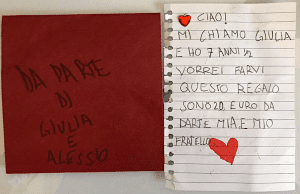 DA PARTE
DI
GIULIA
E
ALESSIO
CIAO!
MI CHIAMO GIULIA
E HO 7 ANNI ½
VORREI FARVI
QUESTO REGALO
SONO 20 EURO DA
PARTE MIA E MIO
FRATELLO